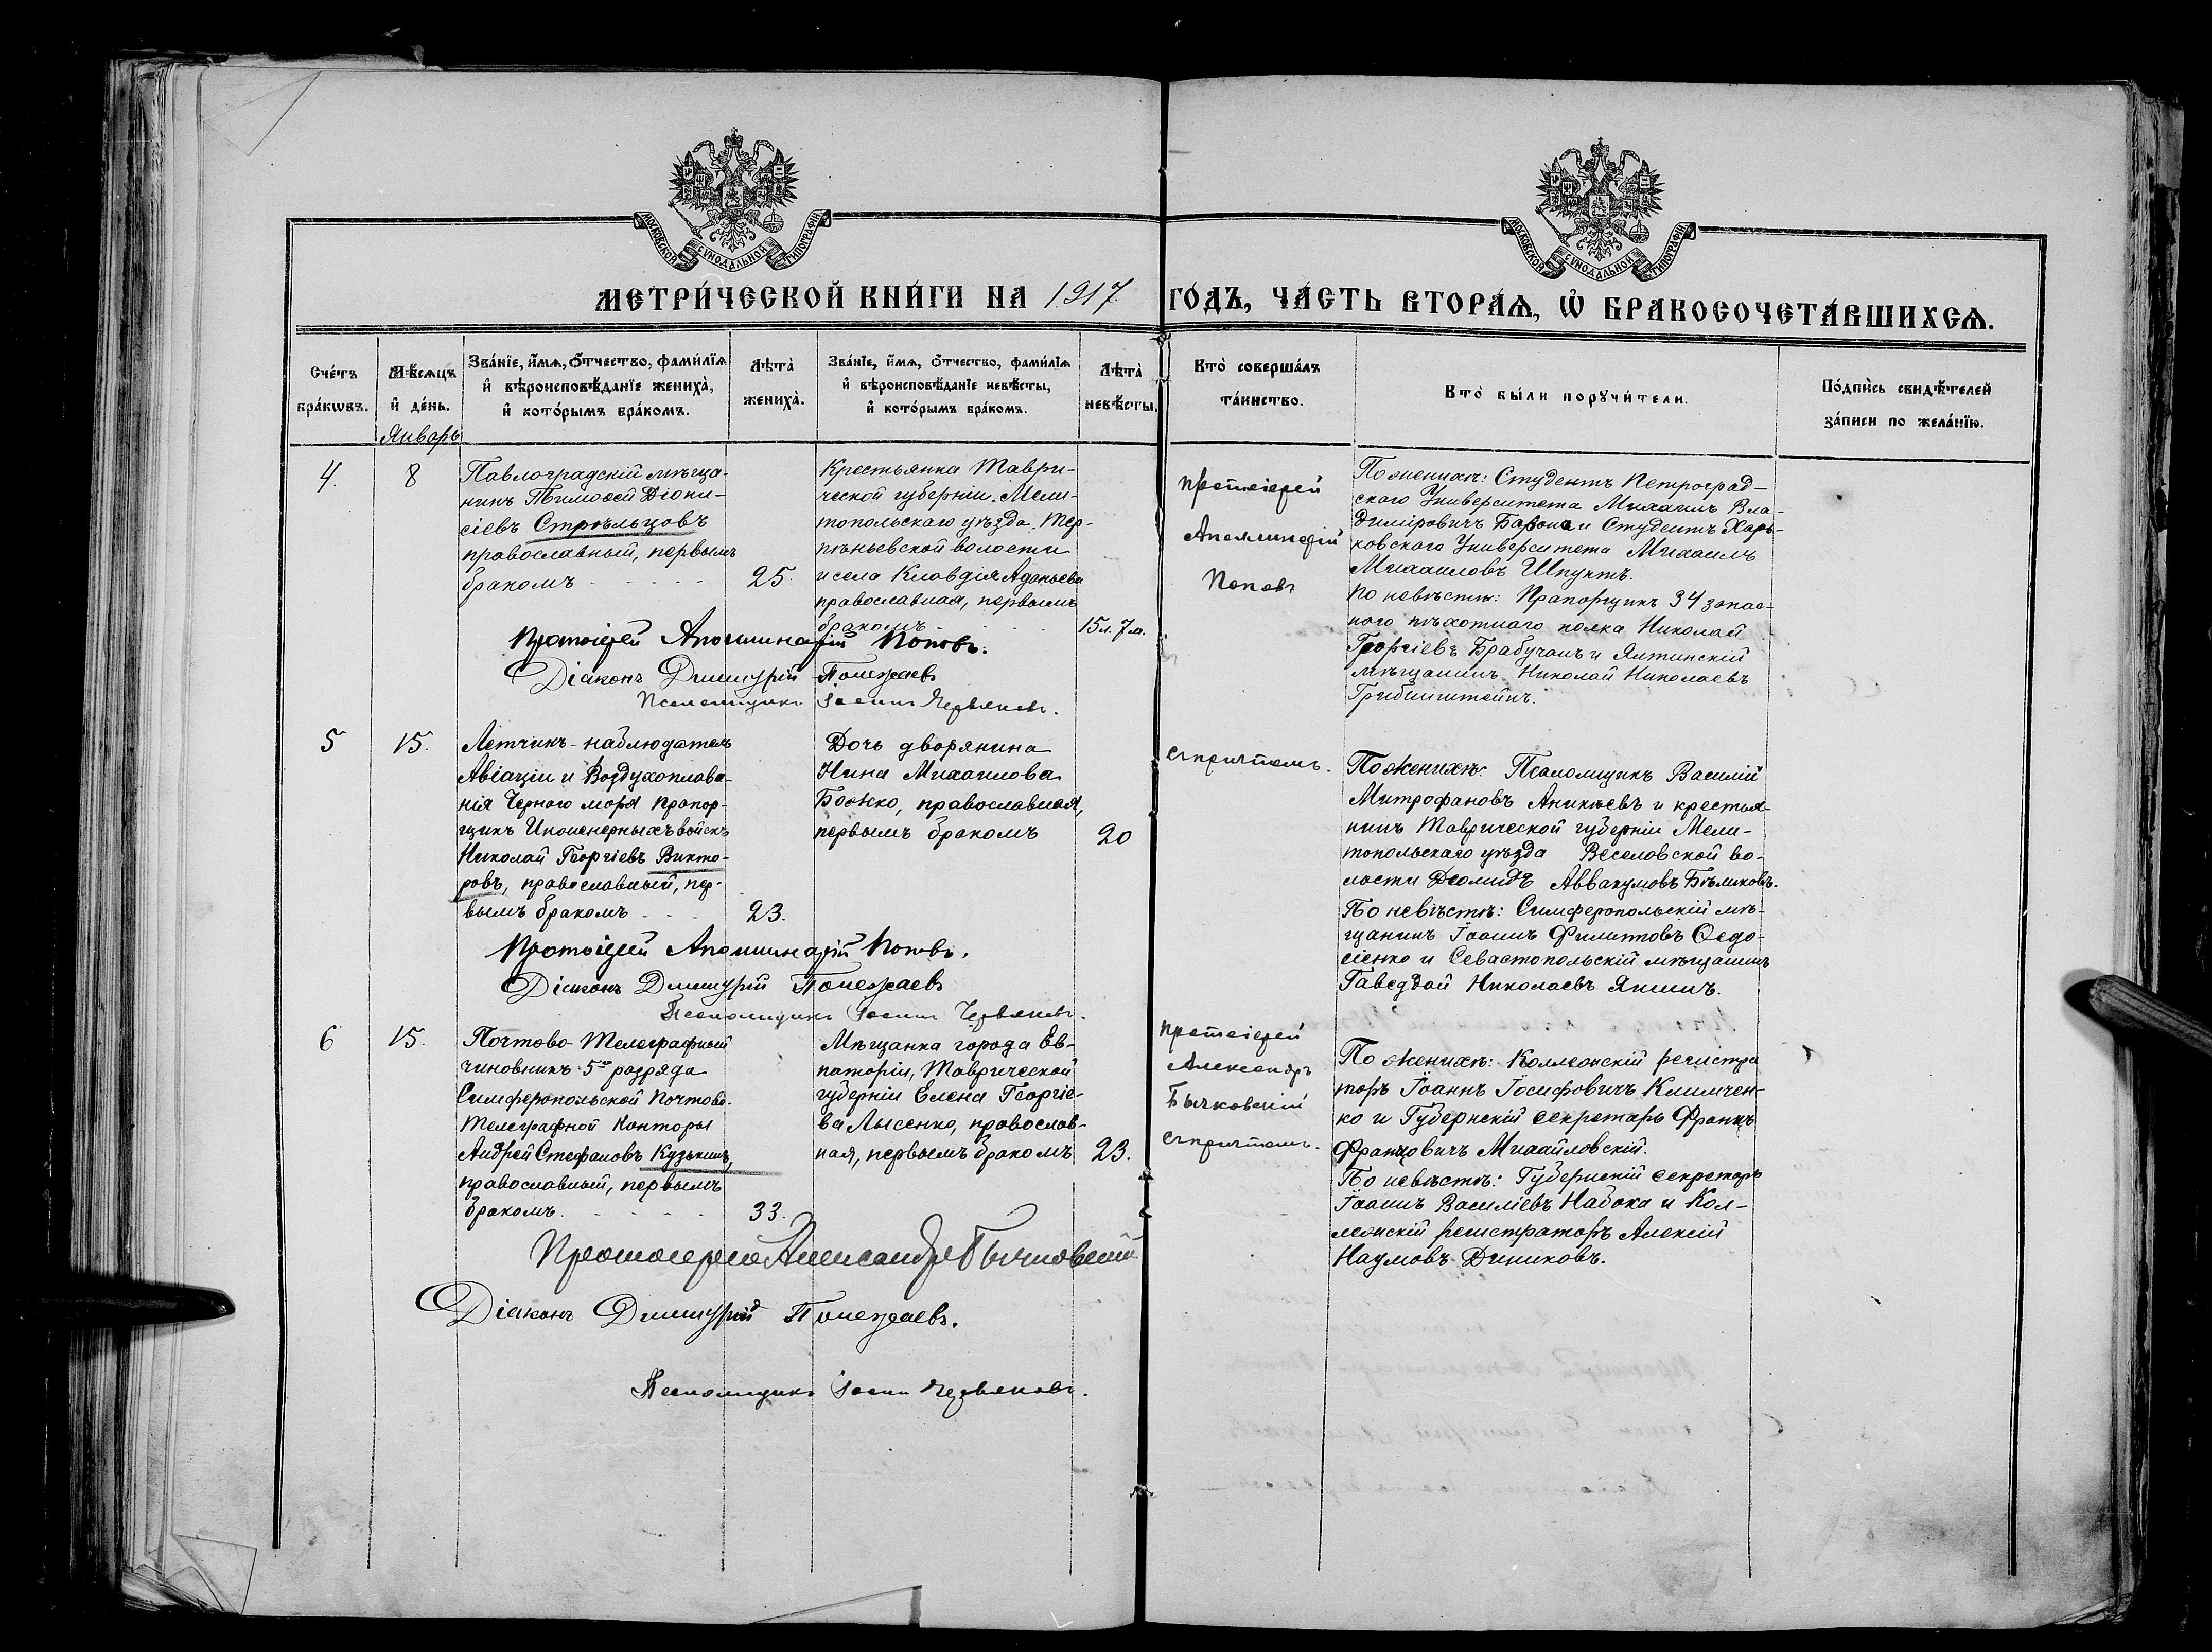 МОСКОВСКОЙ СѴНОДАЛЬНОЙ ТИПОГРАФІИ
МОСКОВСКОЙ СѴНОДАЛЬНОЙ ТИПОГРАФІИ
МЕТРИ́ЧЕСКОЙ КНИ́ГИ НА 1917 ГОДЪ, ЧА́СТЬ ВТОРА́Ѧ, Ѡ҆ БРАКОСОЧЕТА́ВШИХСѦ.
Сче́тъ бра́кωвъ.
Мѣ́сѧцъ и҆ де́нь.
Зва́нїе, и҆́мѧ, ѻ҆́тчество, фами́лїѧ
и҆ вѣроисповѣ́данїе жениха̀,
и҆ кото́рымъ бра́комъ.
Лѣта̀
жениха̀.
Зва́нїе, и҆́мѧ, ѻ҆́тчество, фами́лїѧ
и҆ вѣроисповѣ́данїе невѣ́сты,
и҆ кото́рымъ бра́комъ.
Лѣта̀
невѣ́сты.
Кто̀ соверша́лъ
та́инство.
Кто̀ бы́ли порꙋчи́тели.
По́дпись свидѣ́телей
за́писи по жела́нїю.
Январь
4.
8
Павлоградскій мѣща-
нинъ Тимоѳей Діони-
сіевъ Стрѣльцовъ
православный, первымъ
бракомъ
25.
Крестьянка Таври-
ческой губерніи Мели-
топольскаго уѣзда, Тер-
пѣньевской волости
и села Клавдія Аданьева
православная, первымъ
бракомъ
15 л. 7 м.
Протоіерей
Аполлинарій
Поповъ
По женихѣ: Студентъ Петроград-
скаго Университета Михаилъ Вла-
диміровичъ и Студентъ Харь-
ковскаго Университета Михаилъ
Михаиловъ Шпунтъ.
По невѣстѣ: Прапорщикъ 34 запас-
ного пѣхотнаго полка Николай
Георгіевъ Брабучанъ и Ялтинскій
мѣщанинъ Николай Николаевъ
Протоіерей Аполлинарій Поповъ.
Діаконъ Димитрій Полежаевъ
Псаломщикъ Іоаннъ Червяковъ.
5
15.
Летчикъ-наблюдатель
Авіаціи и Воздухоплава-
нія Чернаго моря Прапор-
щикъ Инженерныхъ войскъ
Николай Георгіевъ Викто-
ровъ, православный, пер-
вымъ бракомъ
23.
Дочь дворянина
Нина Михаилова
Божко, православная,
первымъ бракомъ
20
съ причтомъ.
По женихѣ: Псаломщикъ Василій
Митрофановъ Аникѣевъ и крестья-
нинъ Таврической губерніи Мели-
топольскаго уѣзда Веселовской во-
лости Діомидъ Аввакумовъ Бѣликовъ.
По невѣстѣ: Симферопольскій мѣ-
щанинъ Іоаннъ Филипповъ Ѳедо-
сіенко и Севастопольскій мѣщанинъ
Николаевъ Яшишъ.
Протоіерей Аполлинарій Поповъ.
Діаконъ Димитрій Полежаевъ
Псаломщикъ Іоаннъ Червяковъ.
6
15.
Почтово-Телеграфный
чиновникъ 5го разряда
Симферопольской Почтово-
Телеграфной Конторы
Андрей Стефановъ Кузькинъ,
православный, первымъ
бракомъ.
33.
Мѣщанка города Ев-
паторіи, Таврической
губерніи Елена Георгіе-
ва Лысенко, православ-
ная, первымъ бракомъ
23.
Протоіерей
Александръ
Бычковскій
съ причтомъ.
По женихѣ: Коллежскій регистра
торъ Іоаннъ Іосифовичъ Климчен-
ко и Губернскій секретарь Францъ
Францовичъ Михайловскій.
По невѣстѣ: Губернскій секретарь
Іоаннъ Василіевъ Набока и Кол-
лежскій регистраторъ Алексій
Наумовъ Диниковъ.
Протоіерей Александръ Бычковскій
Діаконъ Димитрій Полежаевъ.
Псаломщикъ Іоаннъ Червяковъ.